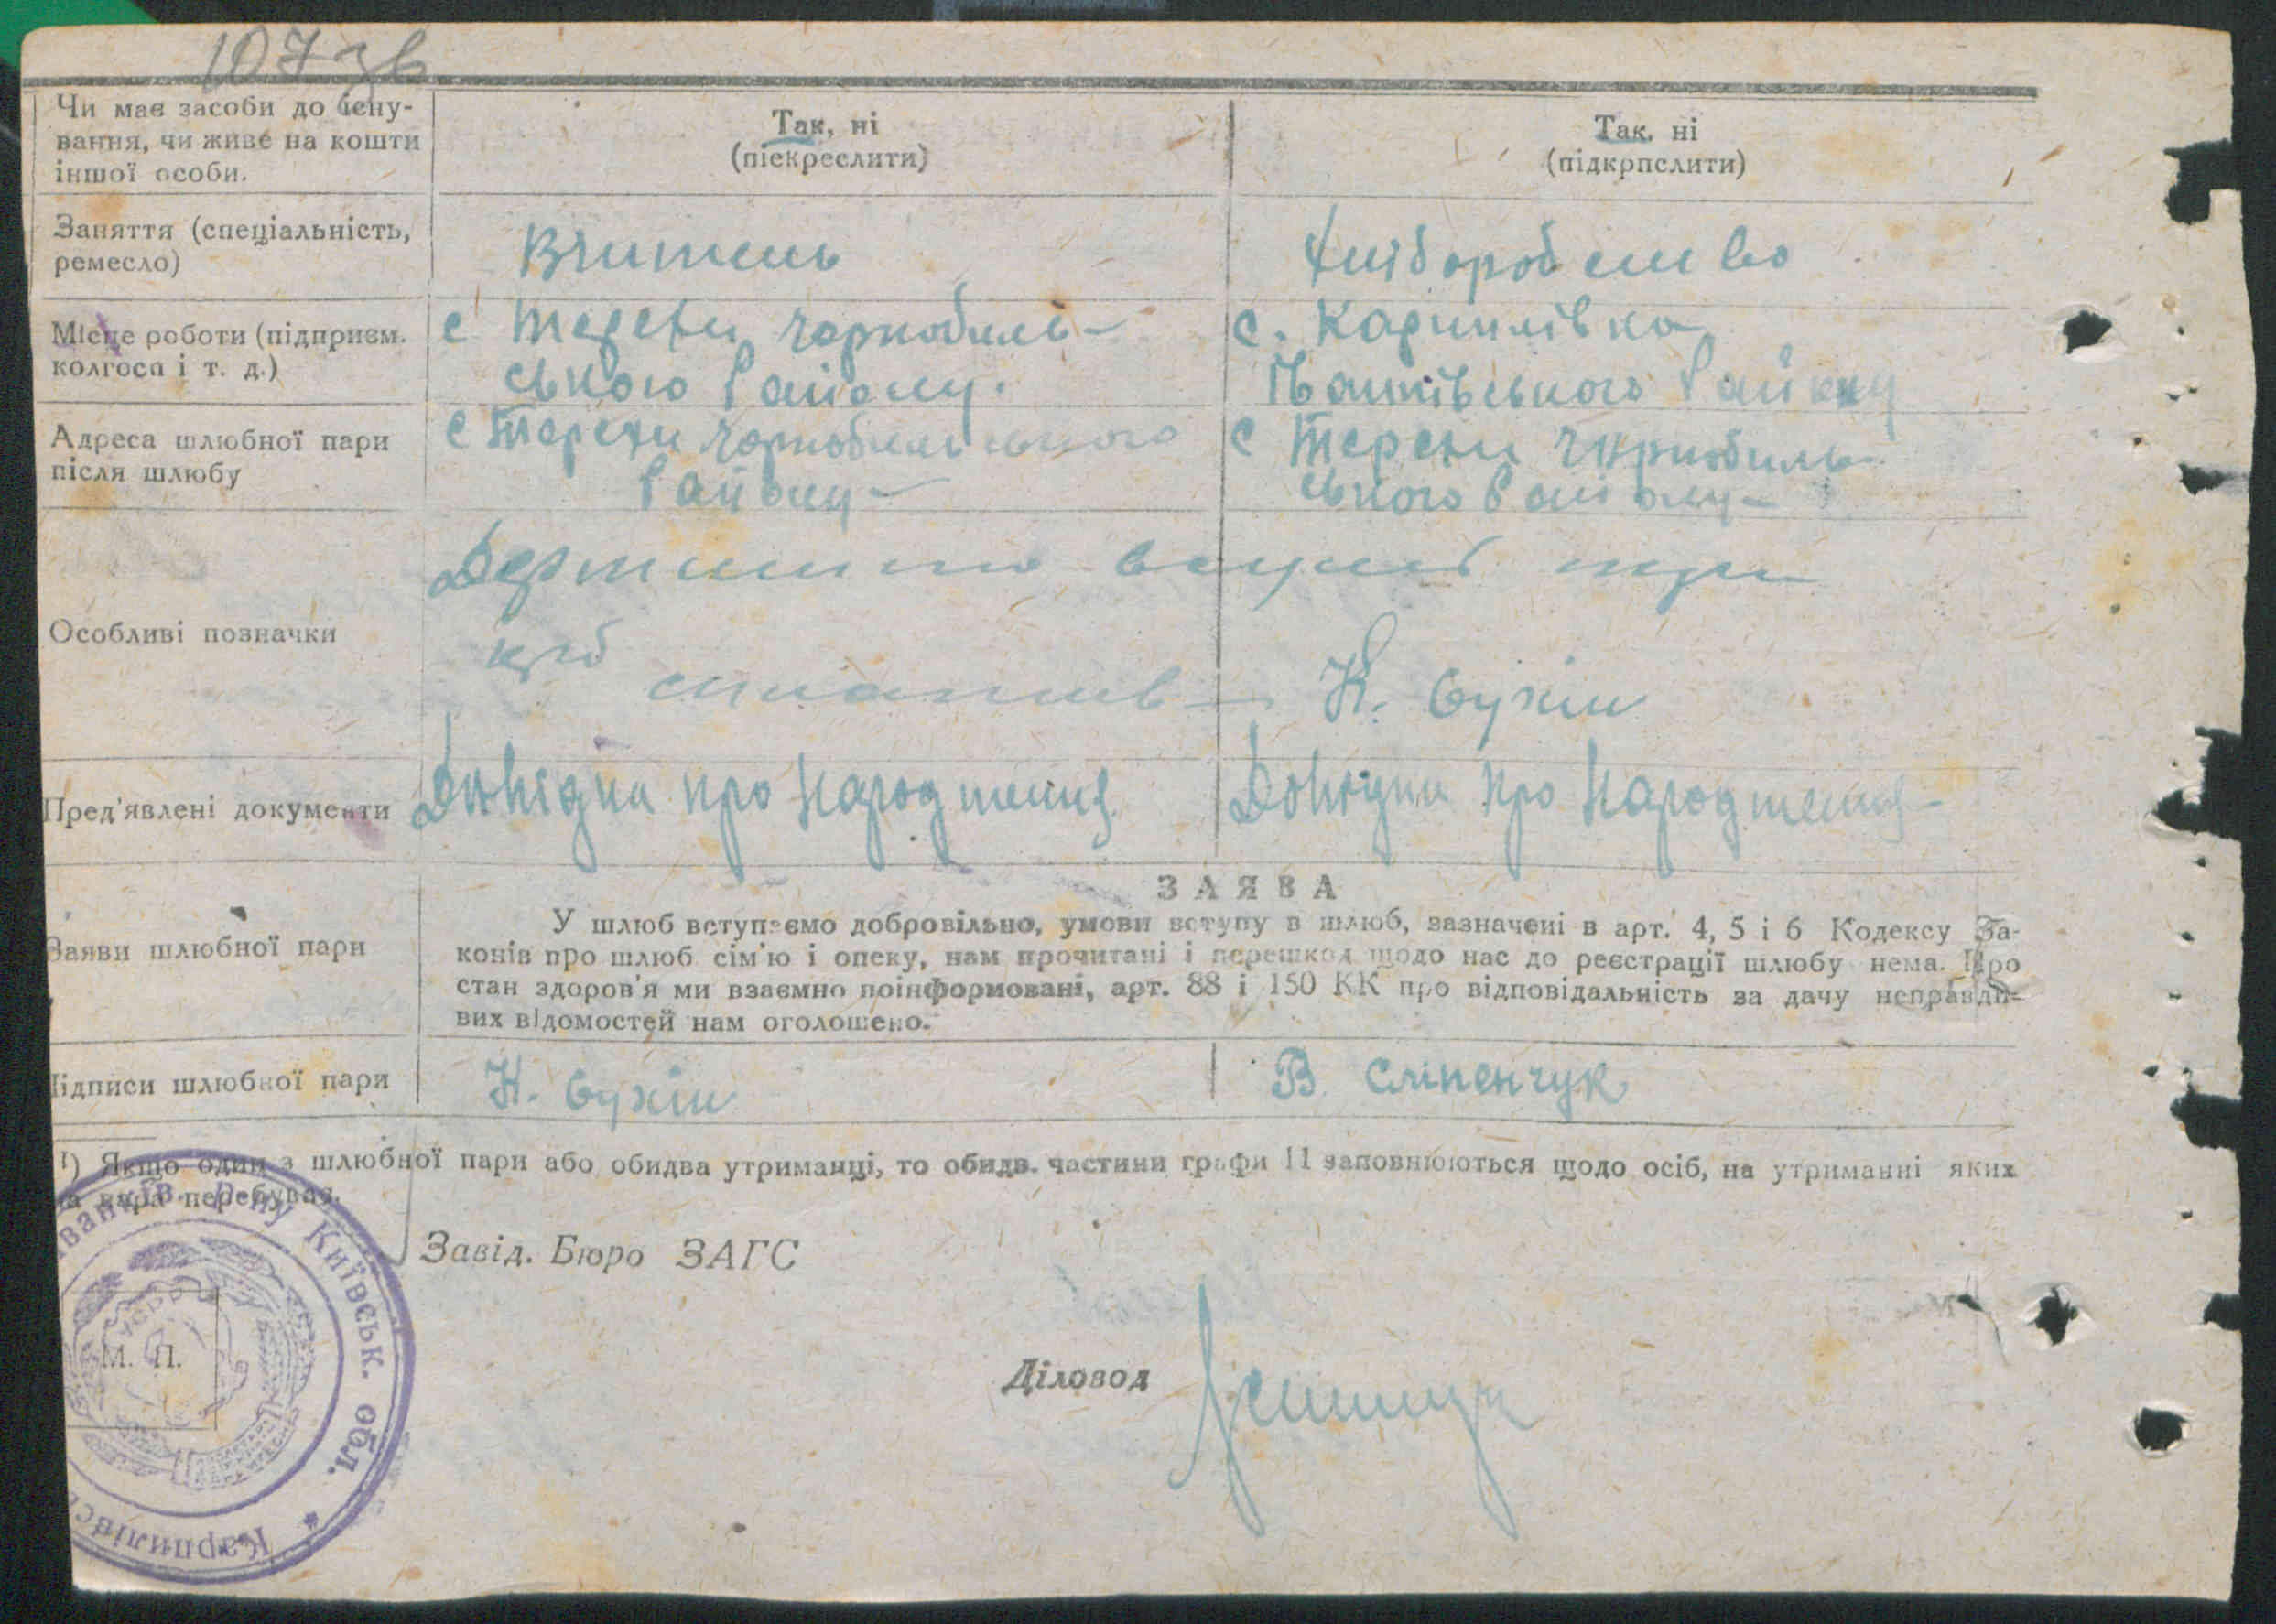 107 зв
Чи має засоби до існу-
вання, чи живе на кошти
іншої особи.
Так, ні
(піекреслити)
Так, ні
(підкрпслити)
Заняття (спеціальність,
ремесло)
Вчитель
Хліборобство
Місце роботи (підприєм.
колгосп і т. д.)
с Терехи Чорнобиль-
ського району.
с. Карпилівка
Іванківського району
Адреса шлюбної пари
після шлюбу
с Терехи Чорнобильського
району
с Терехи Чорнобиль
ського району
Особливі позначки
три
крб
К. Сухій
Пред'явлені документи
Довідка про народження
Довідка про народження
Заяви шлюбної пари
ЗАЯВА
У шлюб вступаємо добровільно, умови вступу в шлюб, зазначені в арт. 4, 5 і 6 Кодексу За-
конів про шлюб сім'ю і опеку, нам прочитані і перешкод щодо нас до реєстрації шлюбу нема. Про
стан здоров'я ми взаємно поінформовані, арт. 88 і 150 КК про відповідальність за дачу неправди-
вих відомостей нам оголошено.
Підписи шлюбної пари
К. Сухій
В. Сліпенчук
1) Якщо один з шлюбної пари або обидва утриманці, то обидв. частини графи 11 заповнюються щодо осіб, на утриманні яких
ця пара перебуває.
Завід. Бюро ЗАГС
М. П.
Діловод
Іванків. р-ну Київськ. обл.
Карпилівс